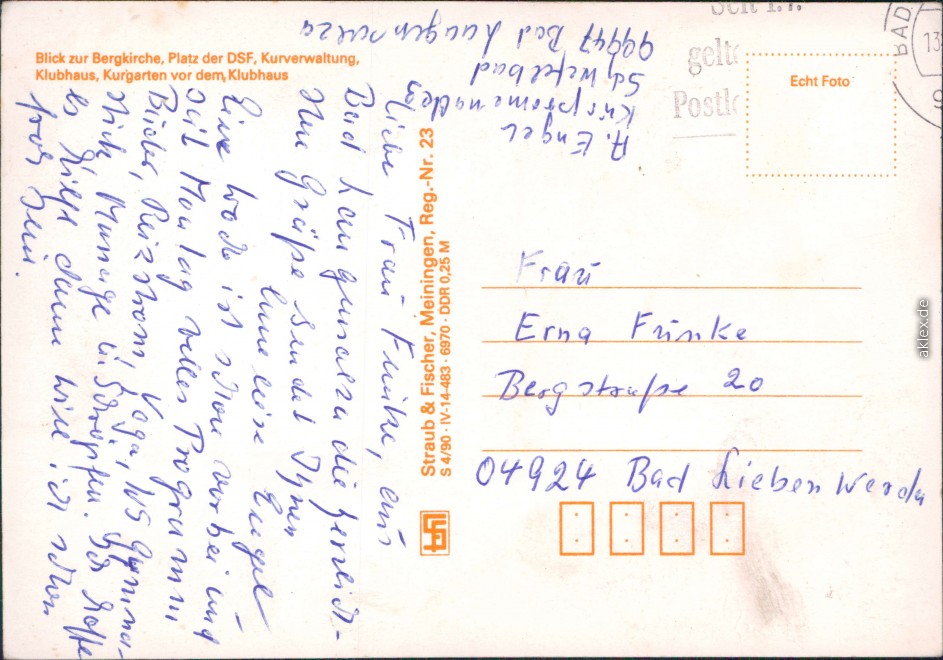 Blick zur Bergkirche, Platz der DSF, Kurverwaltung,
Klubhaus, Kurgarten vor dem Klubhaus
Liebe Frau Funke, aus
Bad Langensalza die herzlich-
sten Grüße sendet Ihnen
Anneliese Engel
Eine Woche ist schon vorbei und
seit Montag volles Programm
Bäder, Reizstrom, Yoga, WS Gymna-
stik, Massage u. Schröpfen. Ich hoffe
es hilft dann wäre ich schon
froh sein.
A. Engel
Kurpromenade
Schwefelbad
99947 Bad Langensalza
Straub & Fischer, Meiningen, Reg.-Nr. 23
S 4/90 · IV-14-483 · 6970 · DDR 0,25 M
Seit 1.7.
gelte
Postle
BAD
13
Echt Foto
Frau
Erna Funke
Bergstraße 20
04924 Bad Liebenwerda
aklex.de